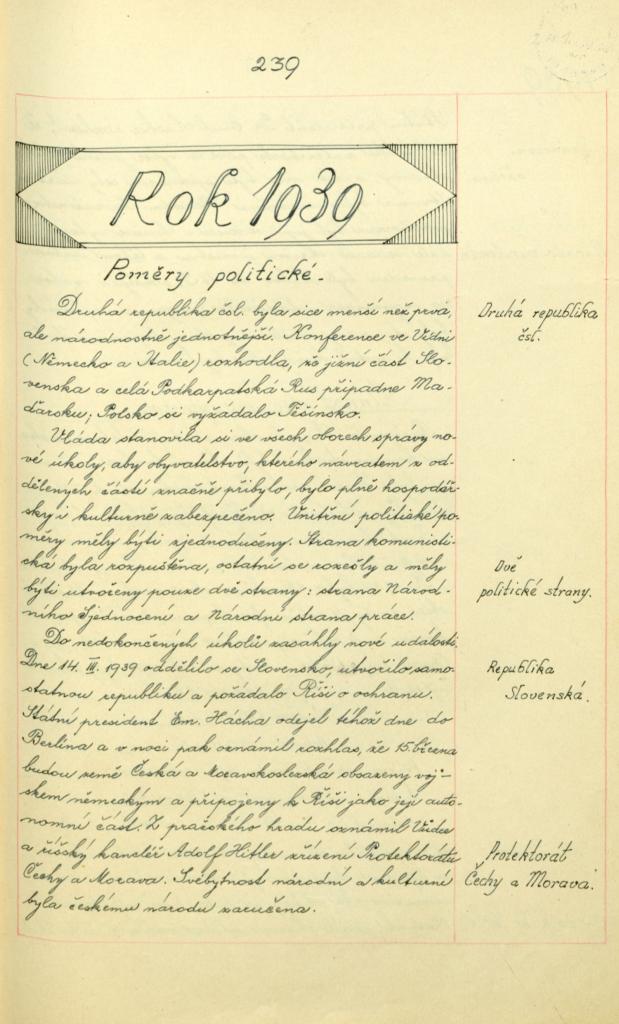 239
Rok 1939
Poměry politické.
Druhá republika čsl. byla sice menší než prvá,
ale národnostně jednotnější. Konference ve Vídni
(Německo a Italie) rozhodla, že jižní část Slo-
venska a celá Podkarpatská Rus připadne Ma-
ďarsku; Polsko si vyžádalo Těšínsko.
Druhá republika
čsl.
Vláda stanovila si ve všech oborech správy no-
vé úkoly, aby obyvatelstvo, kterého návratem z od-
dělených částí značně přibylo, bylo plně hospodář-
sky i kulturně zabezpečeno. Vnitřní politické po-
měry měly býti zjednodušeny. Strana komunisti-
cká byla rozpuštěna, ostatní se rozešly a měly
býti utvořeny pouze dvě strany: strana Národ-
ního Sjednocení a Národní strana práce.
Dvě
politické strany.
Do nedokončených úkolů zasáhly nové události.
Dne 14. III. 1939 oddělilo se Slovensko, utvořilo samo-
statnou republiku a požádalo Říši o ochranu.
Státní president Em. Hácha odejel téhož dne do
Berlína a v noci pak oznámil rozhlas, že 15. března
budou země Česká a Moravskoslezská obsazeny voj-
skem německým a připojeny k Říši jako její auto-
nomní část. Z pražského hradu oznámil Vůdce
a říšský kancléř Adolf Hitler zřízení Protektorátu
Čechy a Morava. Svébytnost národní a kulturní
byla českému národu zaručena.
Republika
Slovenská.
Protektorát
Čechy a Morava.